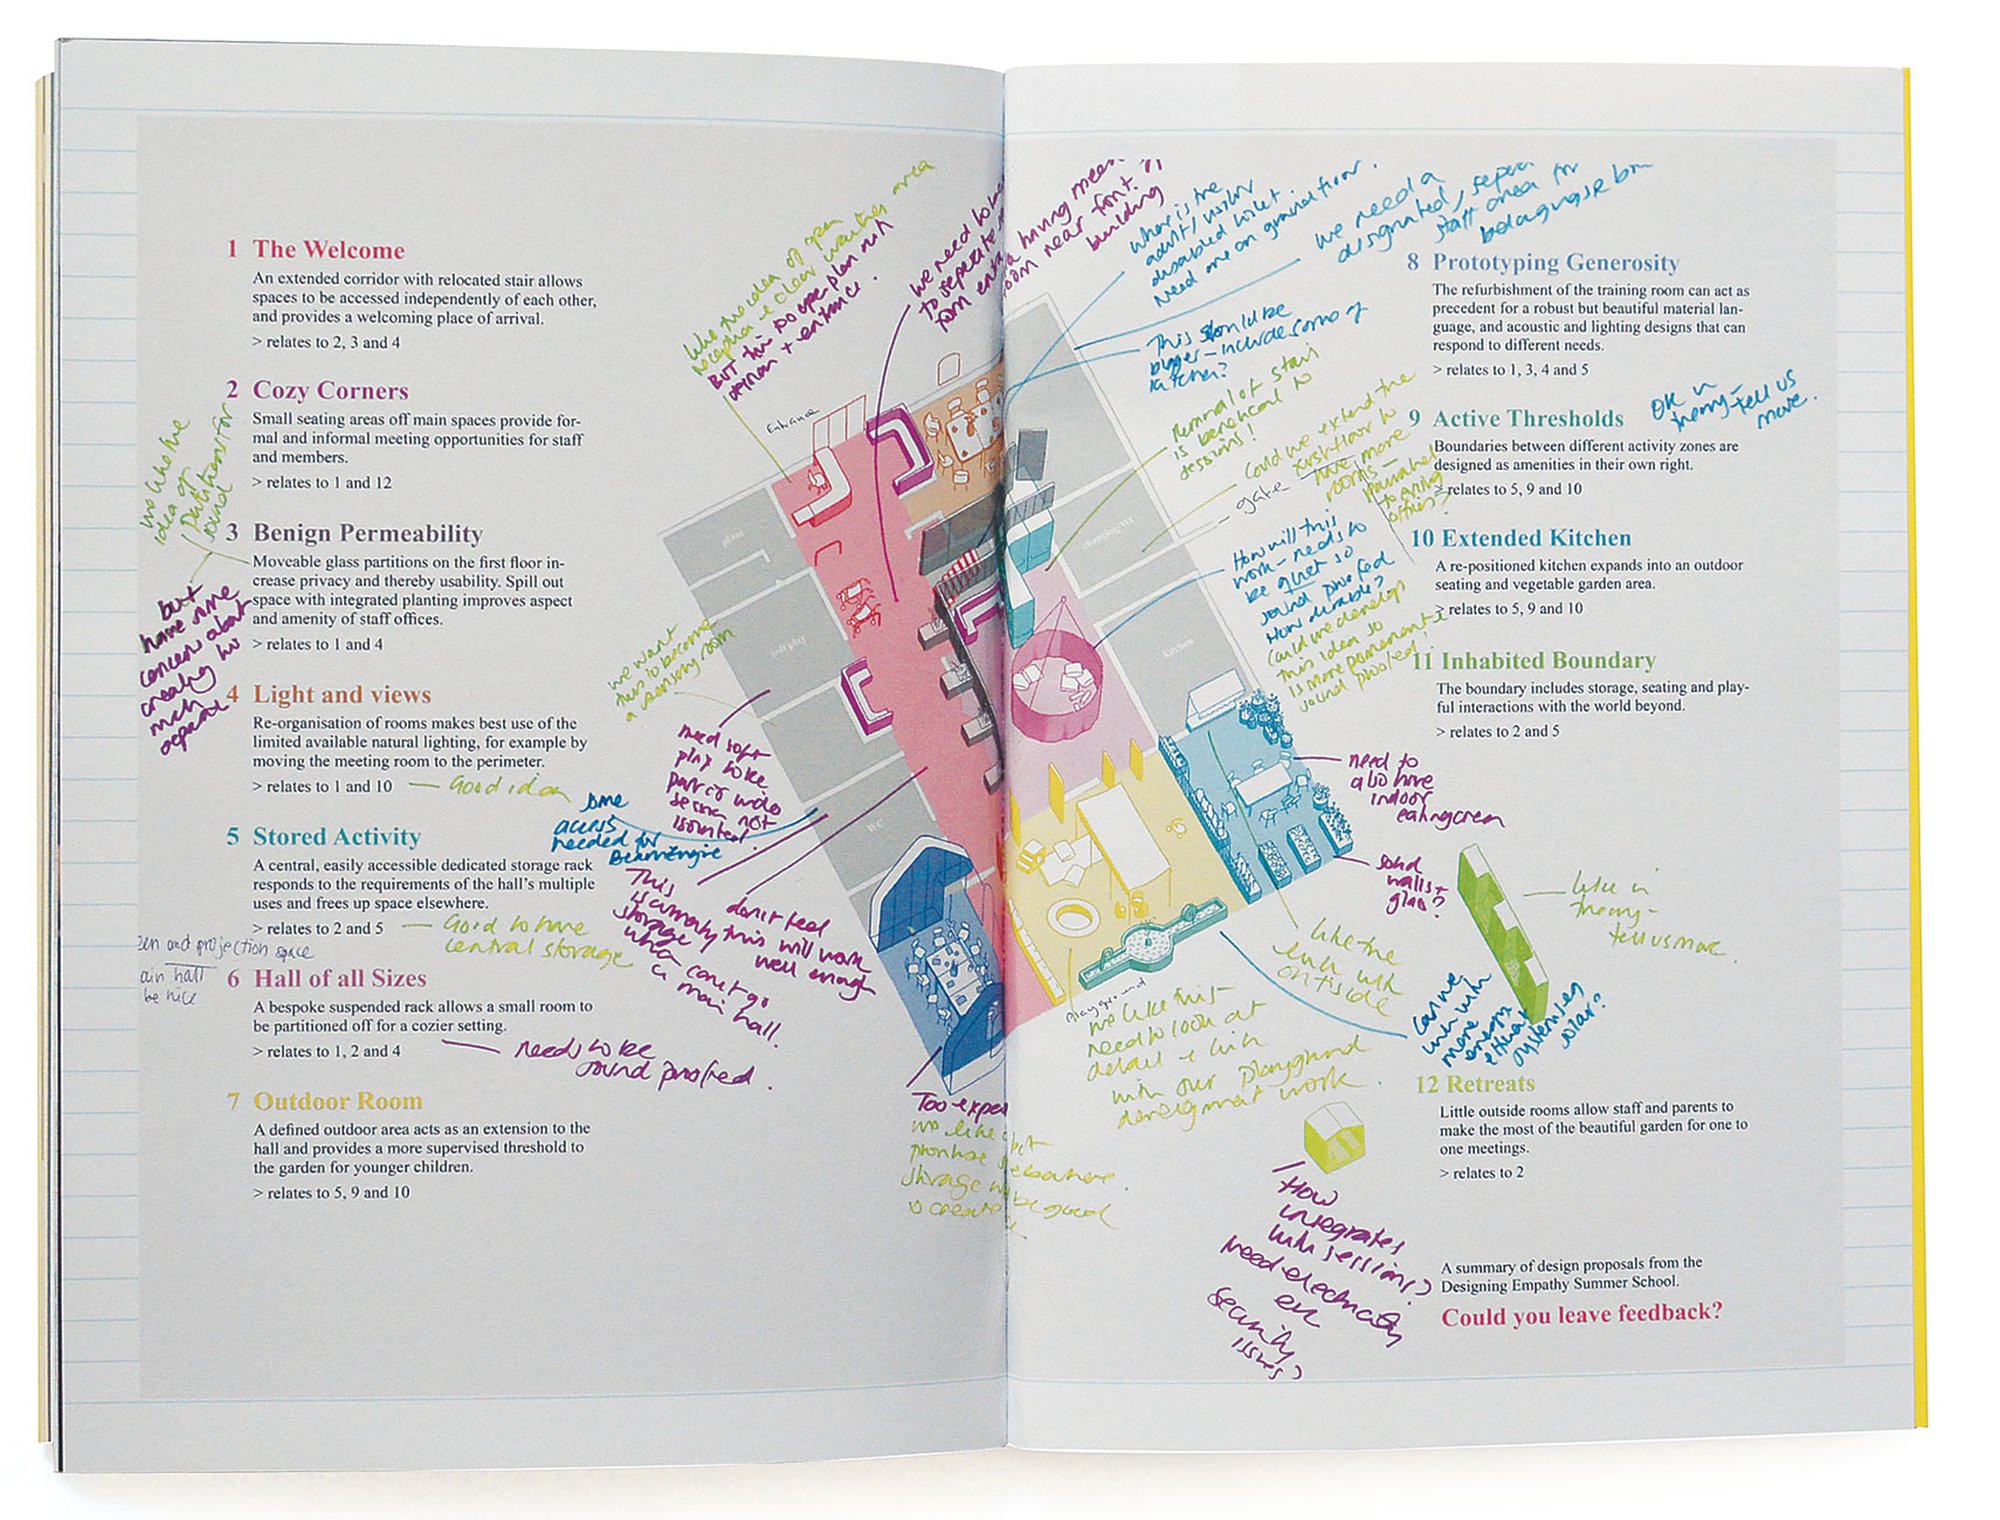 1 The Welcome
An extended corridor with relocated stair allows
spaces to be accessed independently of each other,
and provides a welcoming place of arrival.
> relates to 2, 3 and 4
2 Cozy Corners
Small seating areas off main spaces provide for-
mal and informal meeting opportunities for staff
and members.
> relates to 1 and 12
we like the
idea of
partitions for
sound
3 Benign Permeability
Moveable glass partitions on the first floor in-
crease privacy and thereby usability. Spill out
space with integrated planting improves aspect
and amenity of staff offices.
> relates to 1 and 4
but
have some
concerns about
creating too
much
separat
4 Light and views
Re-organisation of rooms makes best use of the
limited available natural lighting, for example by
moving the meeting room to the perimeter.
> relates to 1 and 10
Good idea
5 Stored Activity
A central, easily accessible dedicated storage rack
responds to the requirements of the hall's multiple
uses and frees up space elsewhere.
> relates to 2 and 5
Good to have
central storage
en and projection space
ain hall
be nice
6 Hall of all Sizes
A bespoke suspended rack allows a small room to
be partitioned off for a cozier setting.
> relates to 1, 2 and 4
needs to be
sound proofed.
7 Outdoor Room
A defined outdoor area acts as an extension to the
hall and provides a more supervised threshold to
the garden for younger children.
> relates to 5, 9 and 10
like the idea of open
reception & clear waiting area
BUT this
+ entrance.
we need to
to separate
from
having meet
room near front of
building
Entrance
plant
soft play
WC
we want
this to become
a sensory room
need soft
play to be
part of wide
session not
isolated.
some
access
needed for
Beam Engine
This
is currently
storage
what can't go
in main hall.
don't feel
this will work
well enough
Too expe
we like
prioritise elsewhere.
storage be good
Where is the
adult/visitor
disabled toilet
Need one on ground floor.
we need a
designated, separa
staff area for
belongings
This should be
bigger - include some of
kitchen?
Removal of stairs
is beneficial to
sessions!
Could we extend the
first floor to
have more
rooms -
gate
offices?
How will this
work - needs to
be quiet so
sound proofed
How durable?
Could we develop
this idea so
is more permanent &
sound proofed!
changing/WC
kitchen
need to
also have
indoor
eating area
solid
walls +
glass?
like the
link with
outside
Playground
we like this
need to look at
detail & link
with our playground
development work.
Can we
link with
more
energy
efficient
systems eg
solar?
like in
theory -
tell us more.
8 Prototyping Generosity
The refurbishment of the training room can act as
precedent for a robust but beautiful material lan-
guage, and acoustic and lighting designs that can
respond to different needs.
> relates to 1, 3, 4 and 5
OK in
theory -
tell us
more.
9 Active Thresholds
Boundaries between different activity zones are
designed as amenities in their own right.
> relates to 5, 9 and 10
10 Extended Kitchen
A re-positioned kitchen expands into an outdoor
seating and vegetable garden area.
> relates to 5, 9 and 10
11 Inhabited Boundary
The boundary includes storage, seating and play-
ful interactions with the world beyond.
> relates to 2 and 5
12 Retreats
Little outside rooms allow staff and parents to
make the most of the beautiful garden for one to
one meetings.
> relates to 2
How
integrates
with sessions?
Need electricity
etc
security
issues?
A summary of design proposals from the
Designing Empathy Summer School.
Could you leave feedback?